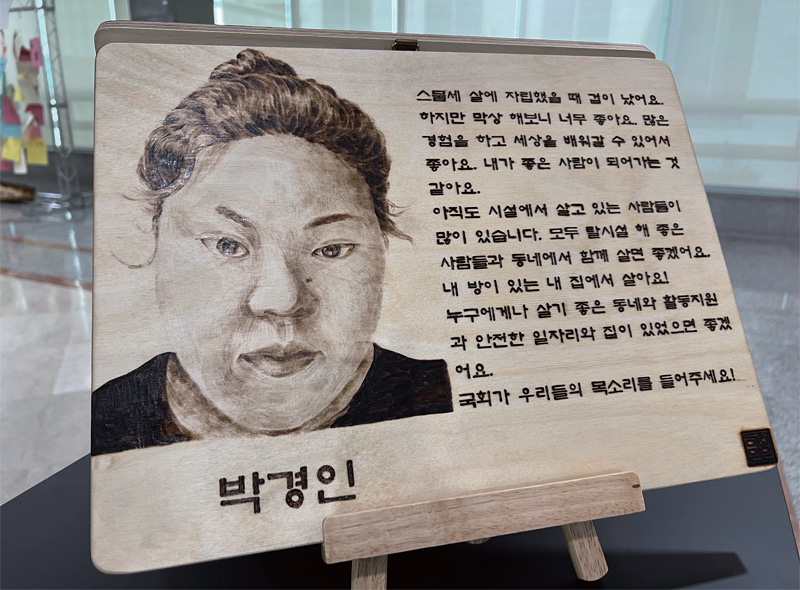 스물세 살에 자립했을 때 겁이 났어요.
하지만 막상 해보니 너무 좋아요. 많은
경험을 하고 세상을 배워갈 수 있어서
좋아요. 내가 좋은 사람이 되어가는 것
같아요.
아직도 시설에서 살고 있는 사람들이
많이 있습니다. 모두 탈시설 해 좋은
사람들과 동네에서 함께 살면 좋겠어요.
내 방이 있는 내 집에서 살아요!
누구에게나 살기 좋은 동네와 활동지원
과 안전한 일자리와 집이 있었으면 좋겠
어요.
국회가 우리들의 목소리를 들어주세요!
박경인